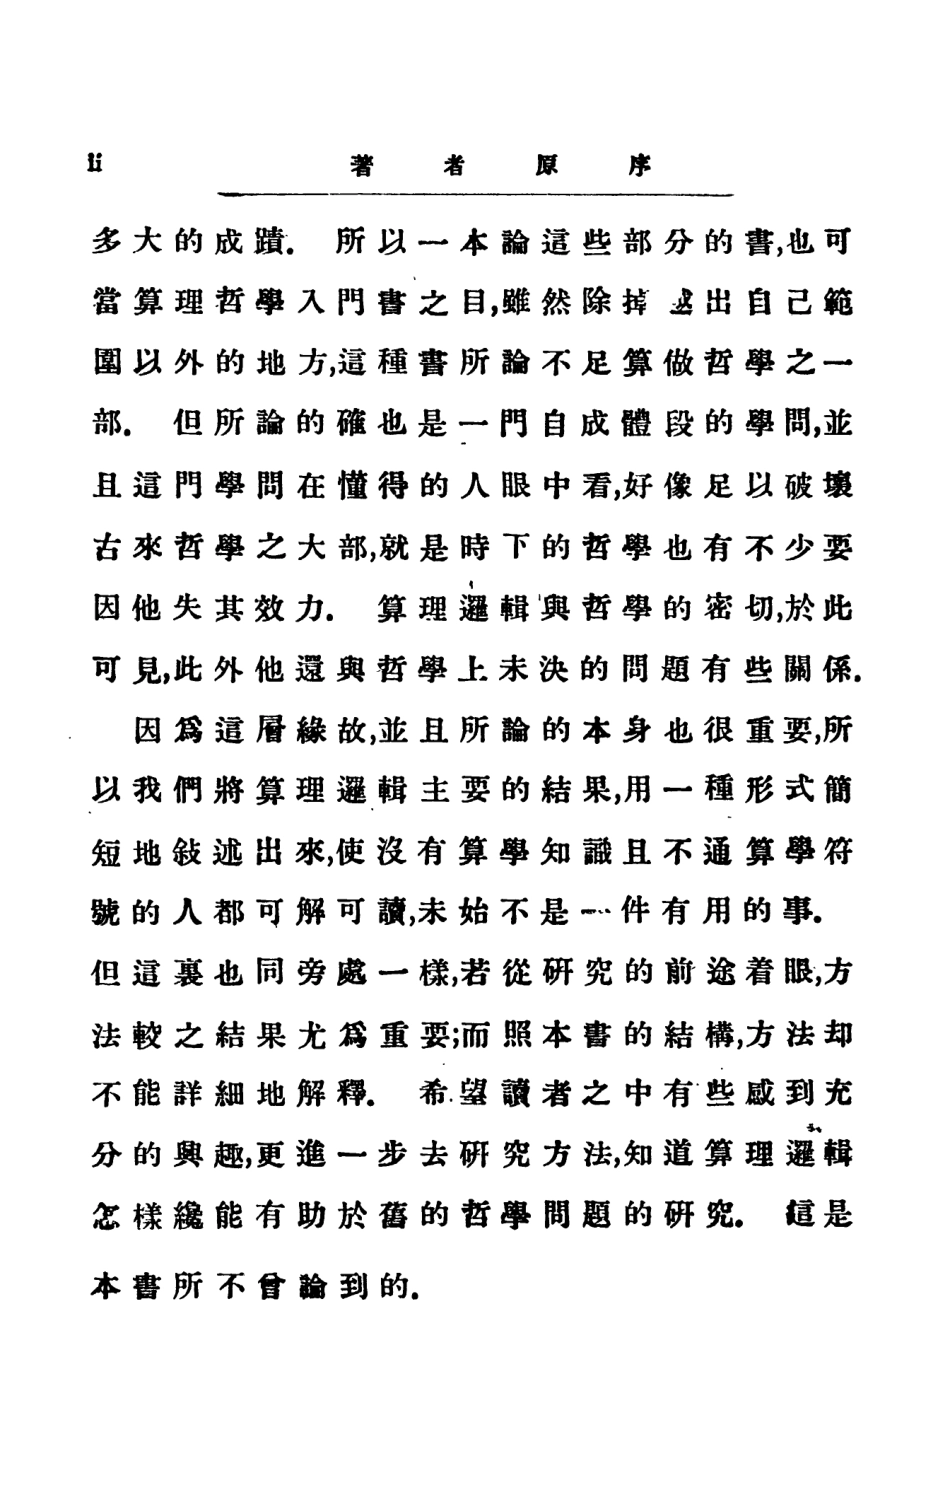 ii 著者原序
多大的成蹟. 所以一本論這些部分的書,也可
當算理哲學入門書之目,雖然除掉 出自己範
圍以外的地方,這種書所論不足算做哲學之一
部. 但所論的確也是一門自成體段的學問,並
且這門學問在懂得的人眼中看,好像足以破壞
古來哲學之大部,就是時下的哲學也有不少要
因他失其效力. 算理邏輯與哲學的密切,於此
可見,此外他還與哲學上未決的問題有些關係.
因爲這層緣故,並且所論的本身也很重要,所
以我們將算理邏輯主要的結果,用一種形式簡
短地敍述出來,使沒有算學知識且不通算學符
號的人都可解可讀,未始不是一件有用的事.
但這裏也同旁處一樣,若從研究的前途着眼,方
法較之結果尤爲重要;而照本書的結構,方法却
不能詳細地解釋. 希望讀者之中有些感到充
分的興趣,更進一步去研究方法,知道算理邏輯
怎樣纔能有助於舊的哲學問題的研究. 這是
本書所不曾論到的.